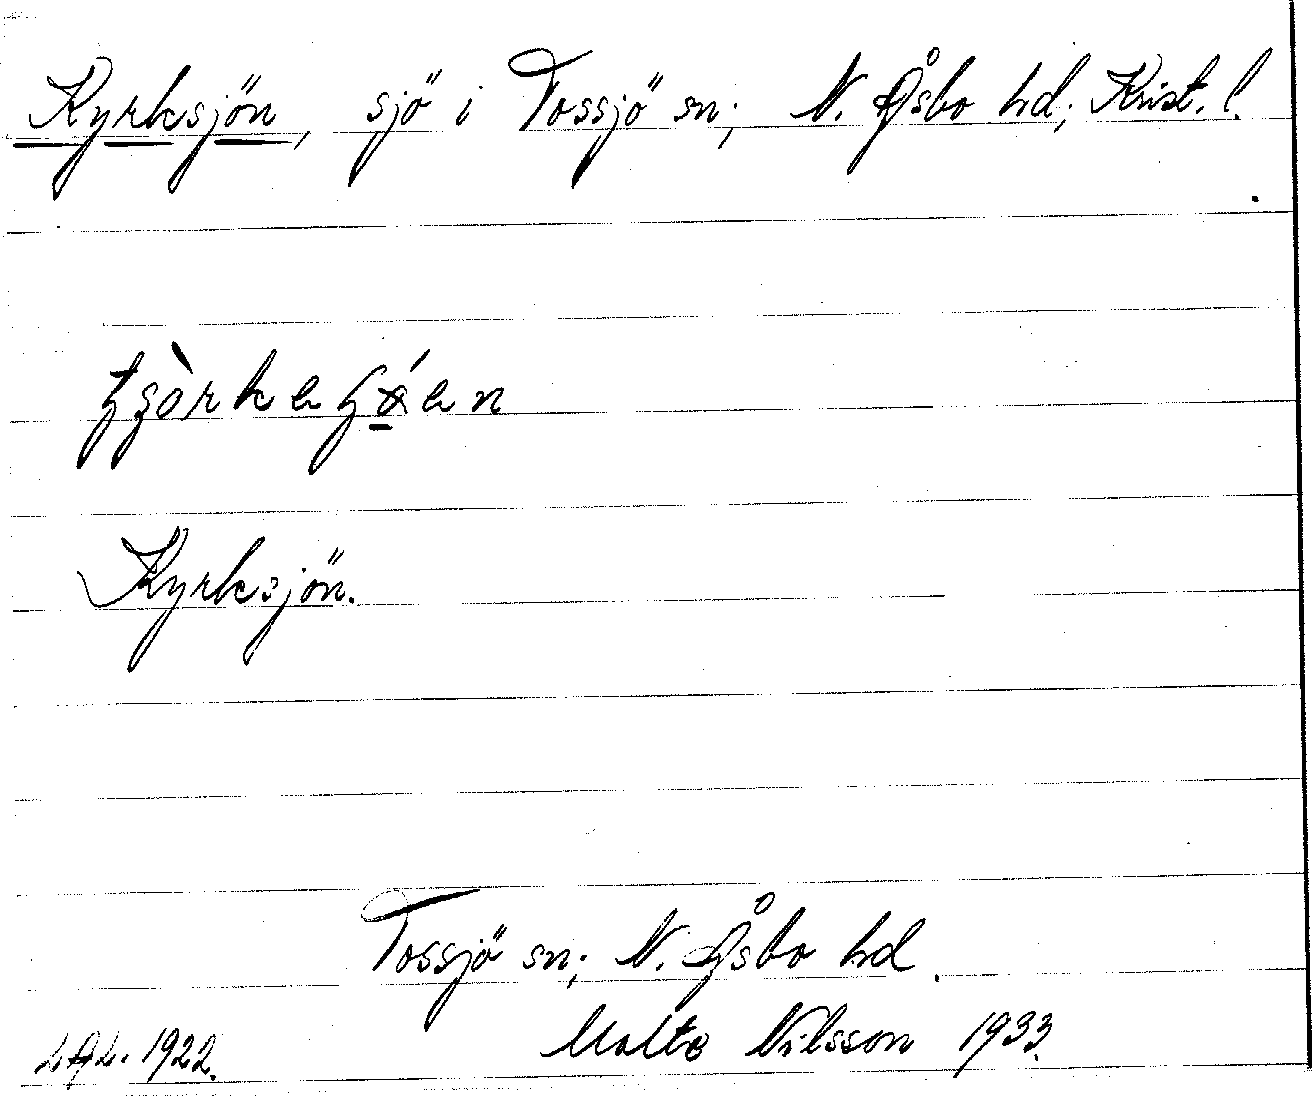 Kyrksjön, sjö i Tossjö sn; N. Åsbo hd; Krist. l.
Kyrksjön.
Tossjö sn; N. Åsbo hd.
LAL. 1922. Malte Nilsson 1933.